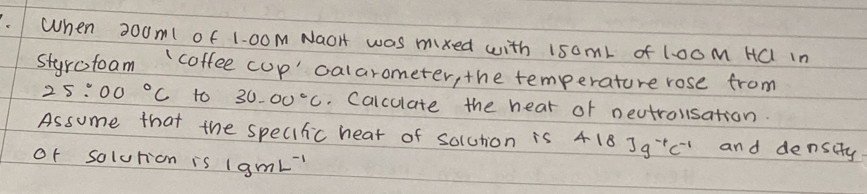 1. When 200ml of 1.00M NaOH was mixed with 150mL of 1.00M HCl in
Styrofoam 'coffee cup' calarometer, the temperature rose from
25.00 °C to 30.00 °C. Calculate the heat of neutrolisation.
Assume that the specific heat of solution is 4.18 Jg⁻¹C⁻¹ and density
of solution is 1gmL⁻¹